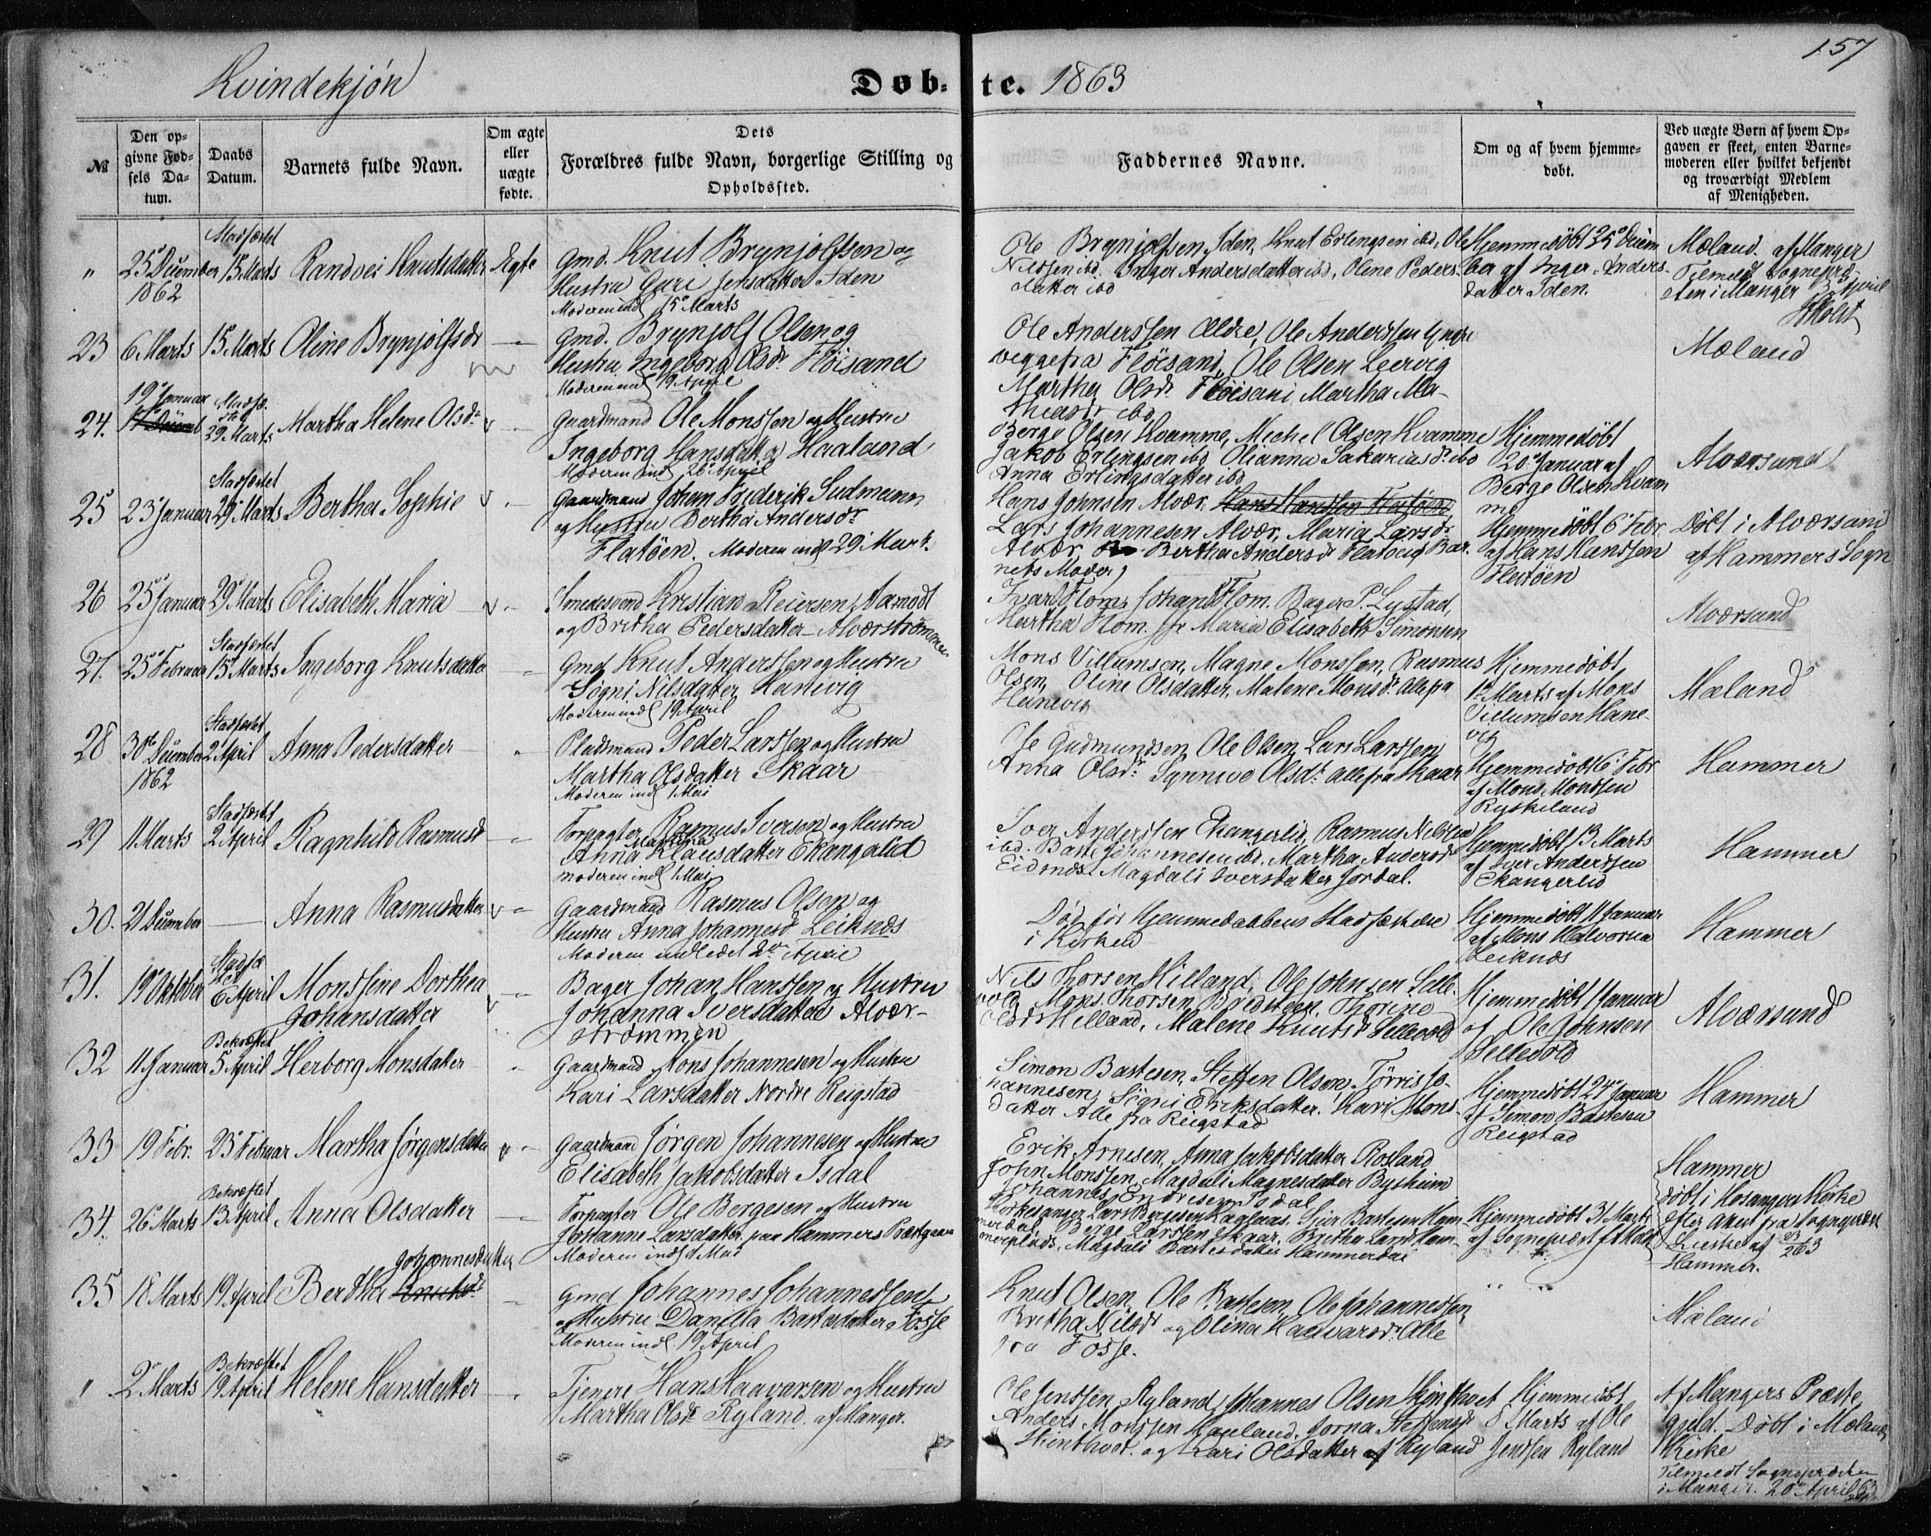 157
Kvindekjön
Døb- te. 1863
№
Den opgivne Fødsels Datum.
Daabs Datum.
Barnets fulde Navn.
Om ægte eller uægte fødte.
Dets Forældres fulde Navn, borgerlige Stilling og Opholdssted.
Faddernes Navne.
Om og af hvem hjemmedøbt.
Ved uægte Børn af hvem Opgaven er skeet, enten Barnemoderen eller hvilket bekjendt og troværdigt Medlem af Menigheden.
" 25 December 1862
Stadfæstet 15 Marts
Randvei Knutsdatter
Ægte
Gmd. Knut Brynjolfsen og
Hustru Guri Jensdatter Iden
Moderen indl 15 Marts
Ole Brynjolfsen Iden, Knut Erlingsen ibd, Ole
Nilssen ibd. Inger Andersdatter ibd, Oline Peders
datter ibd
Hjemmedøbt 25 Decem
ber af Inger Anders
datter Iden.
Mæland. af Manger
Tilmeldt Sognepræ
sten i Manger April
23 6 Marts 15 Marts Oline Brynjolfsdr
Gmd. Brynjolf Olsen og
Hustru Ingeborg Olsdr Fløisand
Moderen indl 19 April
Ole Anderssen Ældre, Ole Anderssen Yngre
begge fra Fløisand, Ole Olsen Leervig
Martha Olsdr Fløisand Martha Ma-
thiasdr ibd
Mæland
24. 19 Januar
Stadfæstet 29 Marts
Martha Helene Olsdr
Gaardmand Ole Monssen og Hustru
Ingeborg Hansdatter Haaland
Moderen indl 26 April
Berge Olsen Kvamme, Michel Olsen Kvamme
Jakob Erlingsen ibd Olianna Sakariasdr ibd
Anna Erlingsdatter ibd
Hjemmedøbt
20 Januar af
Berge Olsen Kvam
me
Alværsund
25 23 Januar
Stadfæstet 29 Marts
Bertha Sophie
Gaardmand Johan Friderik Sudmann
og Hustru Bertha Andersdr
Flatøen. Moderen indl 29 Mart.
Hans Johnsen Alvær.
Lars Johannesen Alvær, Maria Larsdr
Alvær, Bertha Andersdr Flatøen Bar
nets Moder
Hjemmedøbt 6 Febr
af Hans Hanssen
Flatöen
Døbt i Alværsund
af Hammers Sogn
26 25 Januar 29 Marts Elisabeth Maria
Smedesvend Kristian Reiersen Aamodt
og Britha Pedersdatter Alværströmmen
Ivar Flom, Johan Flom. Bager P. Lystad,
Martha Flom. Maria Elisabeth Simonsen
Alværsund
27. 25 Februar
Stadfæstet 15 Marts
Ingeborg Knutsdatter
Gmd Knut Anderssen og Hustru
Sögni Nilsdatter Hanevig
Moderen indl 19 April
Mons Villumsen, Magne Monssen, Rasmus
Olsen, Oline Olsdatter, Malene Monsdr alle fra
Hanevig
Hjemmedøbt
1 Marts af Mons
Villumsen Hane-
vig
Mæland
28 30 December 1862
Stadfæstet 2 April
Anna Pedersdatter
Pladsmand Peder Larssen og Hustru
Martha Olsdatter Skaar
Moderen indl 1 Mai
Ole Gudmundsen, Ole Olsen, Lars Larssen
Anna Olsdr Synnive Olsdr alle fra Skaar
Hjemmedøbt 6 Febr
af Mons Monssen
Rydskeland
Hammer
29 11 Marts
Stadfæstet 2 April
Ragnhild Rasmusdr
Forpagter Rasmus Iversen og Hustru
Anna Martha Klausdatter Ekangerlid
Moderen indl 1 Mai
Iver Anderssen Ekangerlid, Rasmus Nilssen
ibd. Baste Johannesen ibd. Martha Andersdr
Eidsnæs, Magdali Iversdatter Jordal.
Hjemmedøbt 13 Marts
af Iver Anderssen
Ekangerlid
Hammer
30. 21 December
Anna Rasmusdatter
Gaardmand Rasmus Olsen og
Hustru Anna Johannesdr Leiknæs
Moderen indledet 2 April
Död før Hjemmedaabens Stadfæstelse
i Kirken
Hjemmedøbt 11 Januar
af Mons Halvorsen
Leiknæs
Hammer
31. 19 Oktober
Stadfæstet 6 April
Monssine Dorthea
Johansdatter
Bager Johan Hanssen og Hustru
Johanna Iversdatter Alvær-
strømmen
Nils Thorsen Hilland, Ole Johnsen Selle
vold Mons Thorsen Bredsteen, Thorine
Olsdr Hilland, Malene Knutsdr Sellevold
Hjemmedøbt 1 Januar
af Ole Johnsen
Sellevold
Alværsund
32 11 Januar
Bekræftet 5 April
Herborg Monsdatter
Gaardmand Mons Johannesen og Hustru
Kari Larsdatter Nordre Reigstad
Simon Bastesen, Steffen Olsen, Tørris Jo-
hannesen, Signi Eriksdatter. Kari Mons-
datter Alle fra Reigstad
Hjemmedøbt 24 Januar
af Simon Bastesen
Reigstad
Hammer
33 19 Febr. 23 Februar Martha Jörgensdatter
Gaardmand Jörgen Johannesen og Hustru
Elisabeth Jakobsdatter Isdal
Erik Arnesen, Anna Jakobsdatter Rosland
John Monssen, Magdali Magnesdatter Bysheim
Johannes Endresen Isdal
Hammer
døbt i Hosangers Kirke
34. 26 Marts
Bekræftet 13 April
Anna Olsdatter
Forpagter Ole Bergesen og Hustru
Johanne Larsdatter paa Hammers Præstegaard
Moderen indl 1 Mai
Hjemmedøbt 31 Marts
af Sognepræst
Hammer.
35 18 Marts 19 April Bertha Johannesdatter
Gmd Johannes Johannessen
og Hustru Danilla Bastesdatter Fosse
Moderen indl. 19 April
Knut Olsen, Ole Bastesen, Ole Johannessen
Britha Nilsdr og Olina Haavarsdr. Alle
fra Fosse.
Mæland
" 2 Marts
Bekræftet 19 April
Helene Hansdatter
Tjener Hans Haavarsen og Hustru
Martha Olsdr Ryland. af Manger.
Ole Jenssen Ryland, Johannes Olsen Skinthvet
Anders Monssen Hauland, Jorna Steffensdr
Skinthvet. og Kari Olsdatter af Ryland
Hjemmedøbt
8 Marts af Ole
Jenssen Ryland
Af Mangers Præste
gjeld. Døbt i Mælands
Kirke
Tilmeldt Sognepræsten
i Manger. 20 April 63